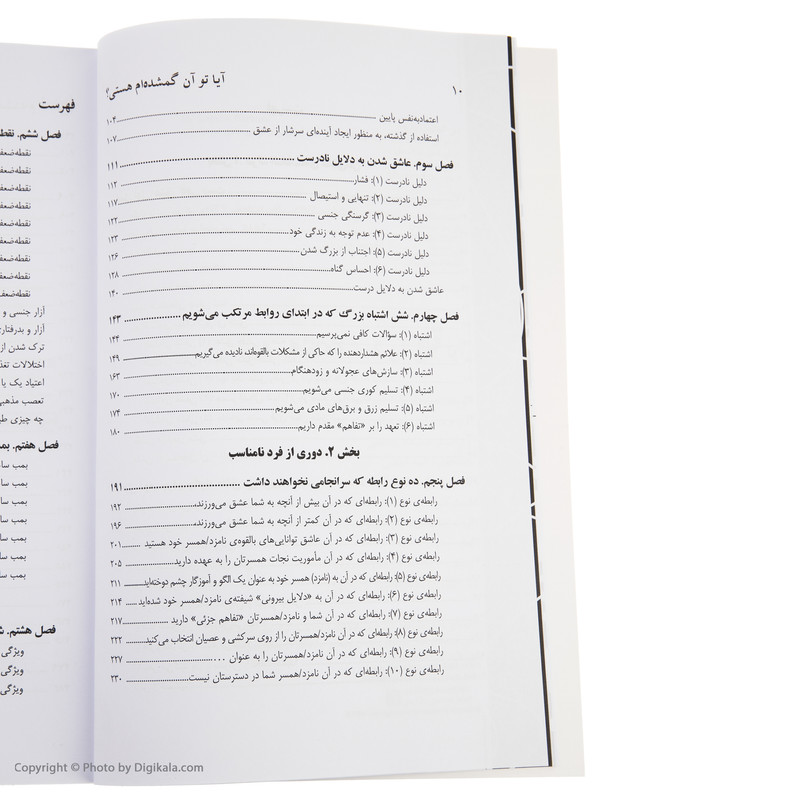 ۱۰ آیا تو آن گمشده‌ام هستی؟
اعتمادبه‌نفس پایین ۱۰۴
استفاده از گذشته، به منظور ایجاد آینده‌ای سرشار از عشق ۱۰۷
فصل سوم. عاشق شدن به دلایل نادرست ۱۱۱
دلیل نادرست (۱): فشار ۱۱۲
دلیل نادرست (۲): تنهایی و استیصال ۱۱۷
دلیل نادرست (۳): گرسنگی جنسی ۱۲۲
دلیل نادرست (۴): عدم توجه به زندگی خود ۱۲۳
دلیل نادرست (۵): اجتناب از بزرگ شدن ۱۲۶
دلیل نادرست (۶): احساس گناه ۱۲۸
عاشق شدن به دلایل درست ۱۴۰
فصل چهارم. شش اشتباه بزرگ که در ابتدای روابط مرتکب می‌شویم ۱۴۳
اشتباه (۱): سؤالات کافی نمی‌پرسیم ۱۴۴
اشتباه (۲): علائم هشداردهنده را که حاکی از مشکلات بالقوه‌اند، نادیده می‌گیریم ۱۴۹
اشتباه (۳): سازش‌های عجولانه و زودهنگام ۱۶۳
اشتباه (۴): تسلیم کوری جنسی می‌شویم ۱۷۰
اشتباه (۵): تسلیم زرق و برق‌های مادی می‌شویم ۱۷۴
اشتباه (۶): تعهد را بر «تفاهم» مقدم داریم ۱۸۰
بخش ۲. دوری از فرد نامناسب
فصل پنجم. ده نوع رابطه که سرانجامی نخواهند داشت ۱۹۱
رابطه‌ی نوع (۱): رابطه‌ای که در آن بیش از آنچه به شما عشق می‌ورزند، ۱۹۲
رابطه‌ی نوع (۲): رابطه‌ای که در آن کمتر از آنچه به شما عشق می‌ورزند، ۱۹۶
رابطه‌ی نوع (۳): رابطه‌ای که در آن عاشق توانایی‌های بالقوه‌ی نامزد/همسر خود هستید ۲۰۱
رابطه‌ی نوع (۴): رابطه‌ای که در آن مأموریت نجات همسرتان را به عهده دارید ۲۰۵
رابطه‌ی نوع (۵): رابطه‌ای که در آن به (نامزد) همسر خود به عنوان یک الگو و آموزگار چشم دوخته‌اید ۲۱۱
رابطه‌ی نوع (۶): رابطه‌ای که در آن به «دلایل بیرونی» شیفته‌ی نامزد/همسر خود شده‌اید ۲۱۴
رابطه‌ی نوع (۷): رابطه‌ای که در آن شما و نامزد/همسرتان «تفاهم جزئی» دارید ۲۱۷
رابطه‌ی نوع (۸): رابطه‌ای که در آن نامزد/همسرتان را از روی سرکشی و عصیان انتخاب می‌کنید ۲۲۲
رابطه‌ی نوع (۹): رابطه‌ای که در آن نامزد/همسرتان را به عنوان ... ۲۲۷
رابطه‌ی نوع (۱۰): رابطه‌ای که در آن نامزد/همسر شما در دسترستان نیست ۲۳۰
فهرست
فصل ششم. نقطه
نقطه‌ضعف
نقطه‌ضعف
نقطه‌ضعف
نقطه‌ضعف
نقطه‌ضعف
نقطه‌ضعف
نقطه‌ضعف
نقطه‌ضعف
نقطه‌ضعف
آزار جنسی و
آزار و بدرفتاری
ترک شدن از
اختلالات تغذ
اعتیاد یک یا
تعصب مذهبی
چه چیزی
فصل هفتم. بمب
بمب سا
بمب سا
بمب سا
بمب سا
بمب سا
بمب سا
بمب سا
فصل هشتم.
ویژگی
ویژگی
ویژگی
Copyright © Photo by Digikala.com